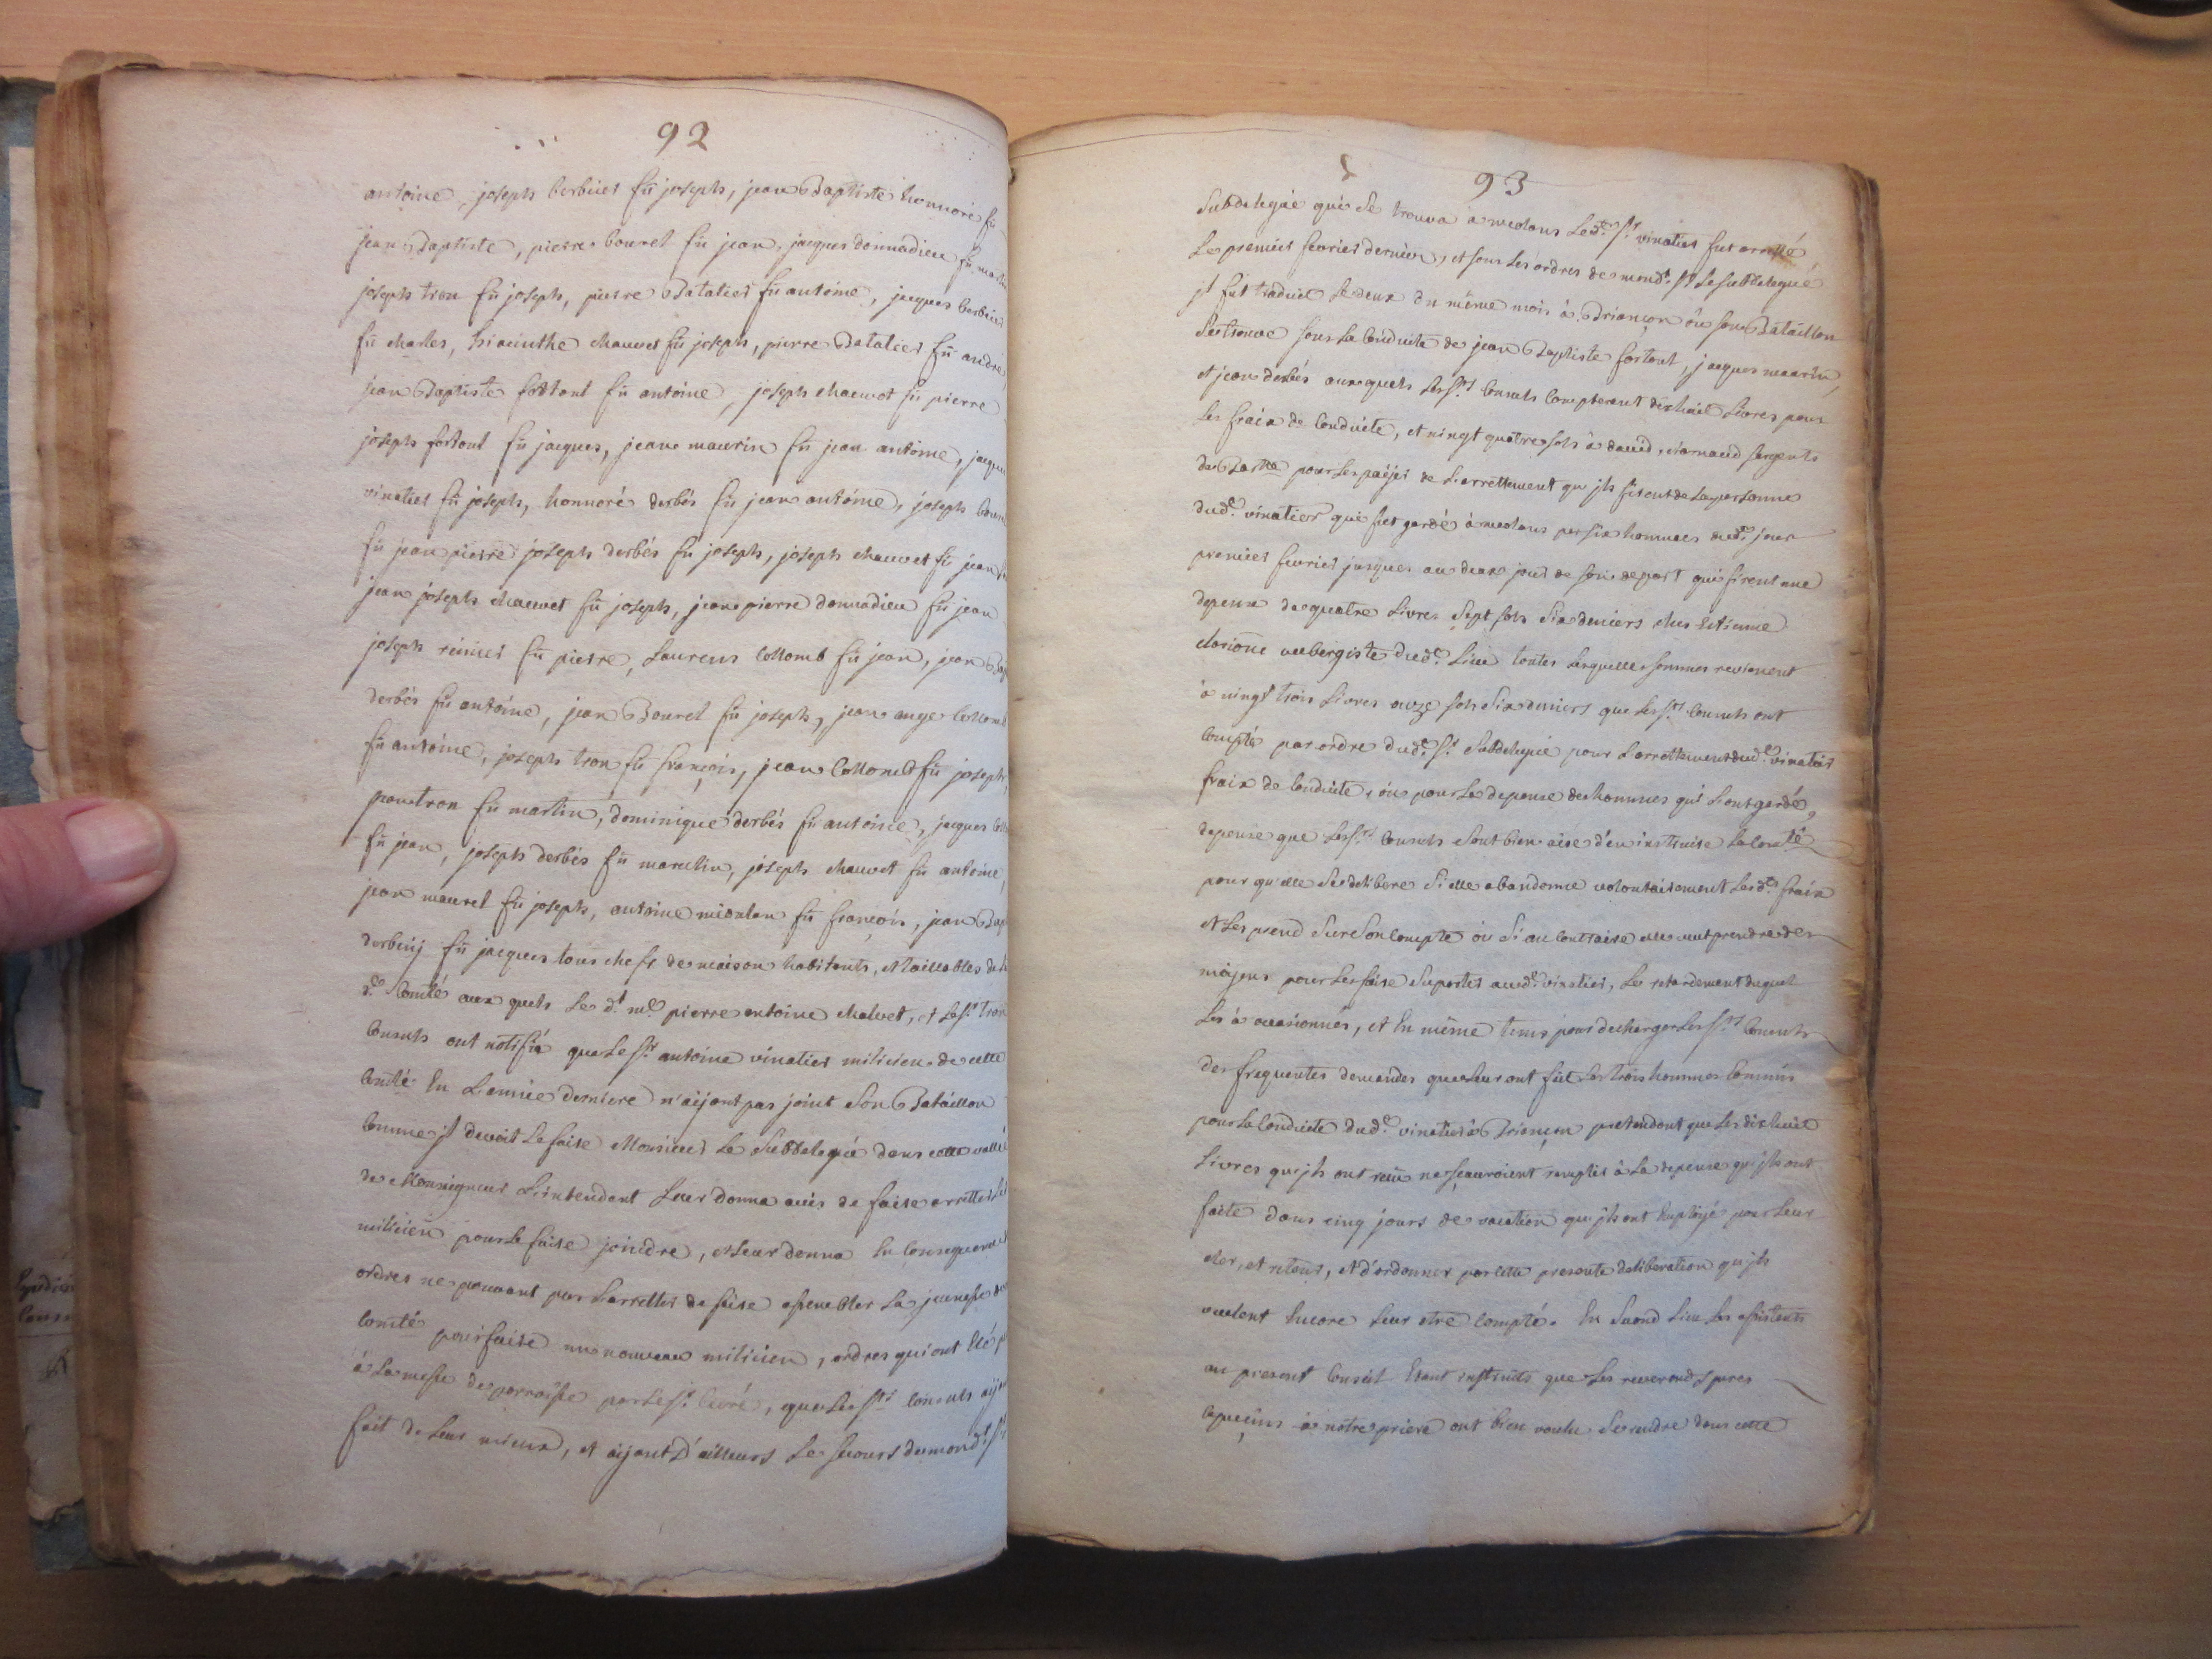 92
antoine, joseph berbier fû joseph, jean Baptiste honnoré fû
jean Baptiste, pierre bourel fû jean, jacques donnadieu fû
joseph tron fû joseph, pierre Batalier fû antoine, jacques berbier
fû charles, hiacinthe chauvet fû joseph, pierre Batalier fû andre,
jean Baptiste fortoul fû antoine, joseph chauvot fû pierre
joseph fortoul fû jacques, jean maurin fû jean antoine, jacques
vinatier fû joseph, honnoré derbés fû jean antoine, joseph
fû jean pierre joseph derbés fû joseph, joseph chauvet fû jean
jean joseph chauvet fû joseph, jean pierre donnadieu fû jean
joseph reinier fû pierre, Laurens Collomb fû jean, jean
derbés fû antoine, jean Bourel fû joseph, jean ange Collomb
fû antoine, joseph tron fû françois, jean Collomb fû joseph,
jean tron fû martin, dominique derbés fû antoine, jacques
fû jean, joseph derbés fû marcelin, joseph chauvet fû antoine,
jean maurel fû joseph, antoine miollan fû françois, jean
fû jacques tous chefs de maison habitants, et taillables de
d.e Comté aux quels Le d.t m.e pierre antoine chalvet, et Le s.r tron
Consuls ont notifié que Le S.r antoine vinatier milicien de cette
Comté En L'année derniere n'aÿant pas joint Son Bataillon
Comme jl devoit Le faire Monsieur Le Subdelegué dans cette vallée
de Monseigneur L'intendant Leur donna avis de faire arretter
milicien pour Le faire joindre, et Leur donna En Consequence
ordres ne pouvant pas L'arretter de faire assembler La jeunesse
Comté pour faire un nouveau milicien, ordres qui ont Eté
à La messe de parroisse par Le s.r Curé, que Les s.rs Consuls
fait de Leur mieux, et aÿant D'ailleurs Le secours de mond.t
93
Subdelegué qui Se trouva à meolans Led.t S.r vinatier fut arretté
Le premier fevrier dernier, et sous Les ordres de mond.t S.r Le Subdelegué
jl fut traduit Le deux du même mois à Briançon où son Bataillon
Se trouve sous La Conduite de jean Baptiste fortoul, jacques maurin,
et jean derbés aux quels Les s.rs Consuls Compterent dix huit Livres pour
Les fraix de Conduite, et vingt quatre sols à david, arnaud sergents
de pour Les païer de L'arrettement qu'jls firent de La personne
dud.t vinatier qui fut gardé à meolans par six hommes dud.t jour
premier fevrier jusques au deux jour de son depart qui firent une
depense de quatre Livres Sept sols Six deniers ches Estienne
aubergiste dud.t Lieu toutes Lesquelles sommes revienent
à vingt trois Livres onze sols Six deniers que Les s.rs Consuls ont
Compté par ordre dud.t S.r Subdelegué pour L'arrettement dud.t vinatier
fraix de Conduite, ou pour La depense des hommes qui L'ont gardé,
depense que Les s.rs Consuls sont bien aise d'en instruire La Com.té
pour qu'elle Se delibere Si elle abandonne volontairement Les d.ts fraix
et Les prend Sur Son Compte ou Si au Contraire elle veut prendre des
moÿens pour Les faire Suporter aud.t vinatier, Le retardement duquel
Les à occasionnés, et En même tems pour decharger Les s.rs Consuls
des frequentes demandes que Leur ont fait Les trois hommes Commis
pour La Conduite dud.t vinatier à Briançon pretendont que Les dix huit
Livres qu'jls ont reçu ne sçauroient remplir à La depense qu'jls ont
faite dans cinq jours de vacation qu'jls ont Employé pour Leur
aler, et retour, et d'ordonner par cette presente deliberation qu'jls
veulent Encore Leur etre Compté. En Second Lieu Les assistants
au present Conseil Etant instruits que Les reverends peres
Capucins à notre priere ont bien voulu Se rendre dans cette